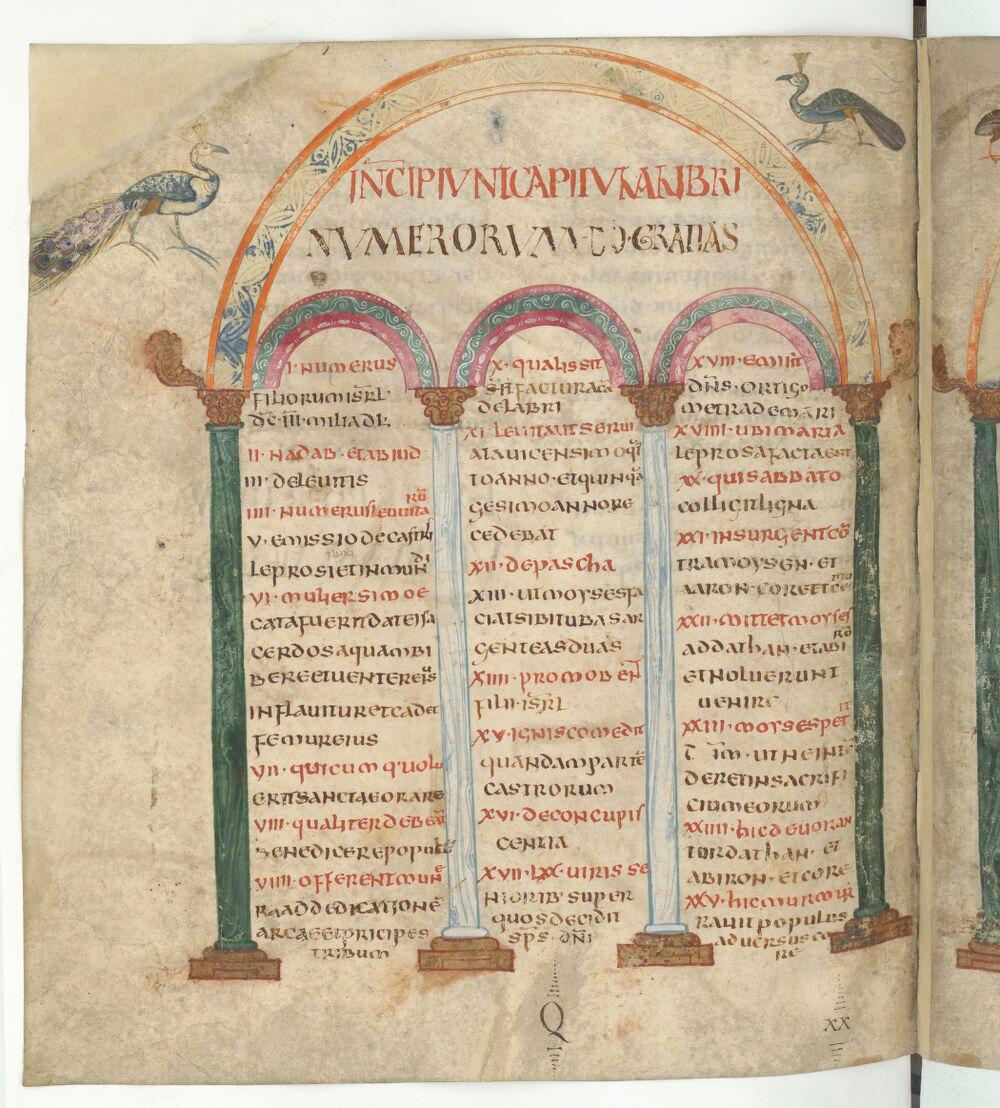 INCIPIUNT CAPITULA LIBRI
NUMERORUM · DŌ · GRATIAS
I · NUMERUS
FILIORUM ISRL
DC · III · MILIA DL
II · NADAB · ET ABIUD
III · DE LEUITIS
IIII · NUMERUS LEUUITA
RŪ
V · EMISSIO DE CASTRI
LEPROSI ET INMUN
DI
VI · MULIER SI MOE
CATA FUERIT DATE ISA
CERDOS AQUAM BI
BERE ET UENTER EIŪS
INFLAUITUR ET CADET
FEMUR EIUS
VII · QUICUMQ UOLU
ERIT SANCTA EORARE
VIII · QUALITER DEBEAT
BENEDICERE POPULU
VIIII · OFFERENT MUNE
RA AD DEDICATIONĒ
ARCAE ET PRICIPES
TRIBUUM
X · QUALIS SIT
FACTURA CA
DELABRI
XI · LEUITA UT SERUI
A UICENSIMO
ANNO · ET QUINQUA
GESIMO ANNO RE
CEDEBAT
XII · DE PASCHA
XIII · UT MOYSES FA
CIAT SIBI TUBAS AR
GENTEAS DUAS
XIIII · PROMOBENT
FILII · ISRL
XV · IGNIS COMEDIT
QUANDAM PARTĒ
CASTRORUM
XVI · DE CONCUPIS
CENTIA
XVII · LXX · UIRIS SE
NIORIB SUPER
QUOS DECIDIT
SPS · DNI
XVIII · EMISIT
DNS · ORTIGO
METRA DE MARI
XVIIII · UBI MARIA
LEPROSA FACTA EST
XX · QUI SABBATO
COLLIGIT LIGNA
XXI · INSURGENT CŌ
TRA MOYSEN · ET
AARON · CORE ET CE
XXII · MITTET MOYSES
AD DATHAN · ET ABI
RŌ
ET NOLUERUNT
UENIRE
XXIII · MOYSES PET
IT
UT NE INTE
DERET IN SACRIFI
CIUM EORUM
XXIIII · HIC DEUORAN
TUR DATHAN · ET
ABIRON · ET CORE
XXV · HIC MURMUR
RAUIT POPULUS
ADUERSUS
Q
XX